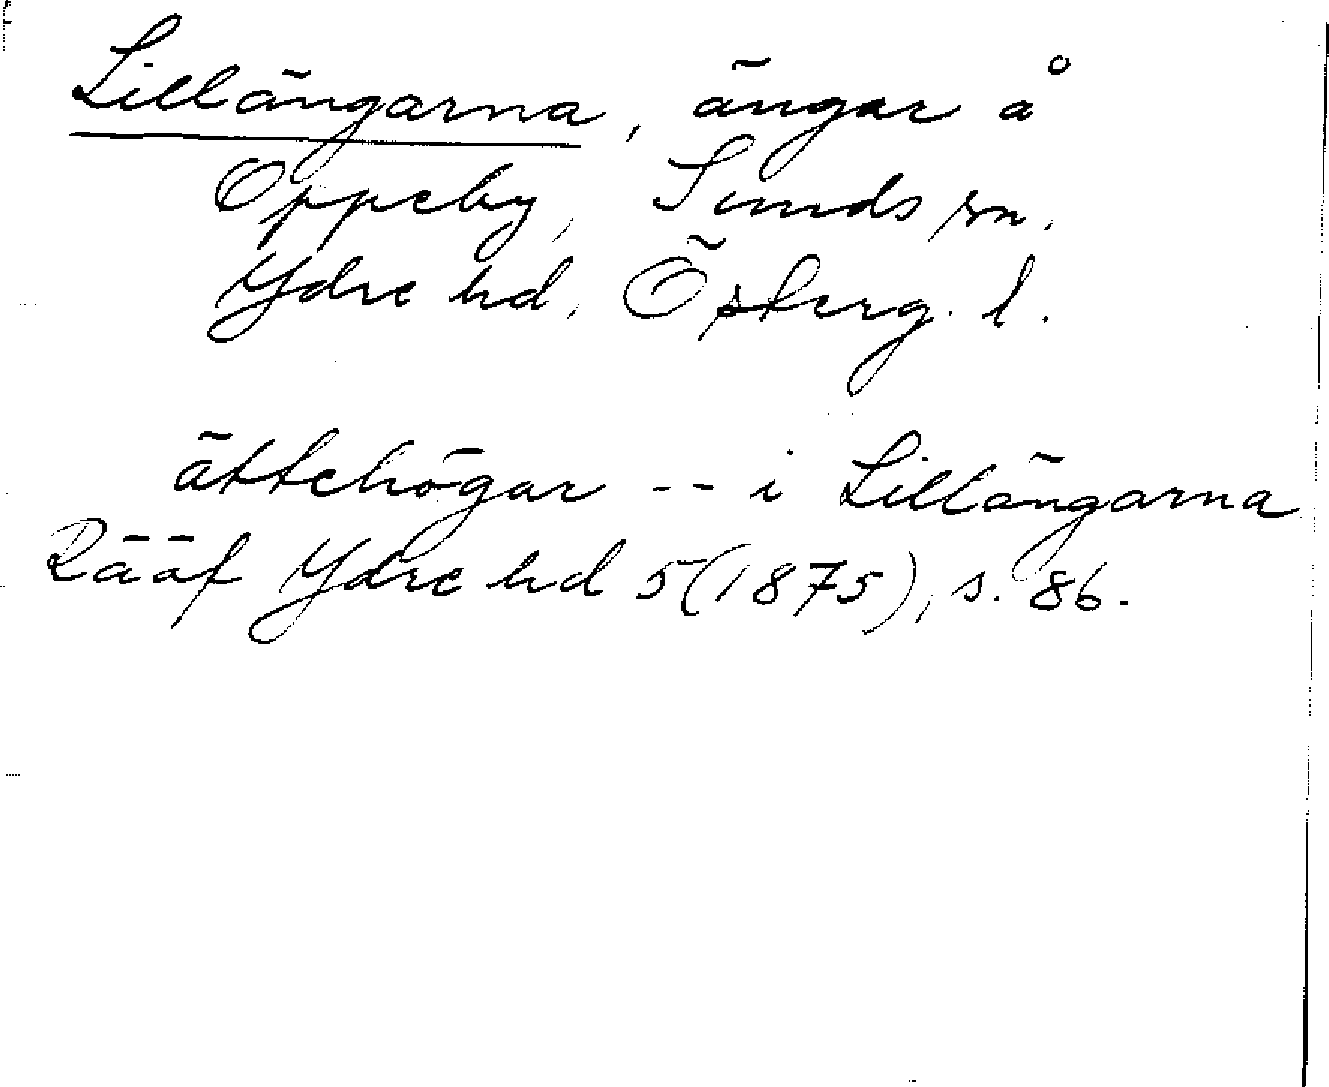 Lillängarna, ängar å
Oppeby, Sunds sn.
Ydre hd, Österg. l.
ättehögar -- i Lillängarna
Rääf Ydre hd 5(1875), s. 86.